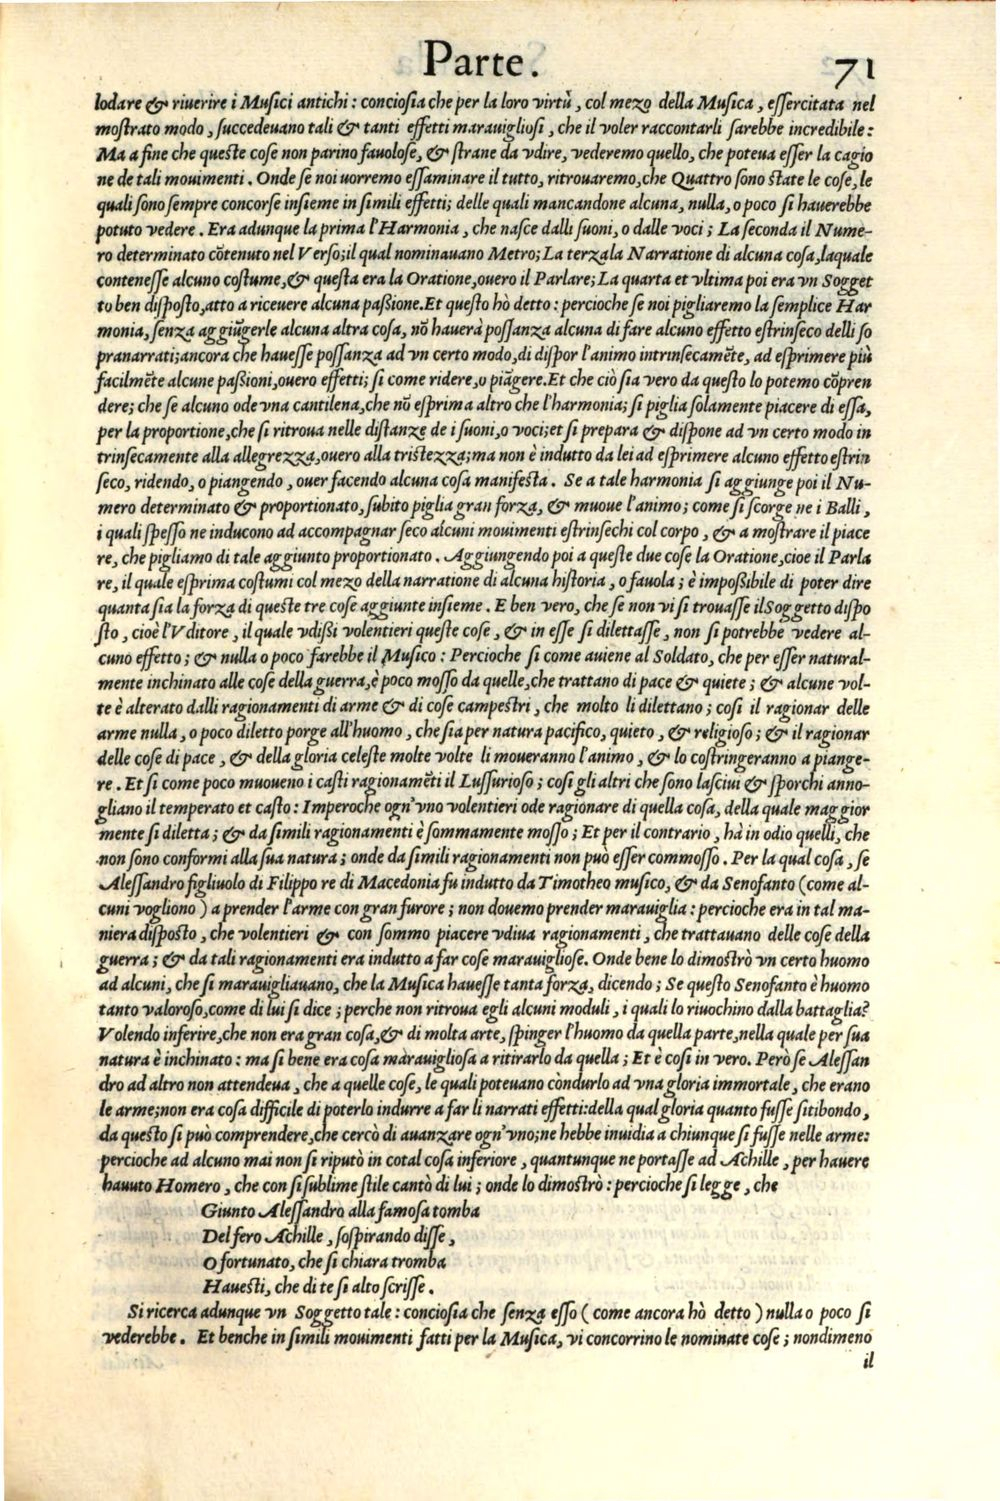 Parte. 71
lodare & riuerire i Musici antichi: conciosia che per la loro virtù, col mezo della Musica, essercitata nel
mostrato modo, succedeuano tali & tanti effetti marauigliosi, che il voler raccontarli sarebbe incredibile:
Ma a fine che queste cose non parino fauolose, & strane da vdire, vederemo quello, che poteua esser la cagio
ne de tali mouimenti. Onde se noi uorremo essaminare il tutto, ritrouaremo, che Quattro sono state le cose, le
quali sono sempre concorse insieme in simili effetti; delle quali mancandone alcuna, nulla, o poco si hauerebbe
potuto vedere. Era adunque la prima l'Harmonia, che nasce dalli suoni, o dalle voci; La seconda il Nume-
ro determinato cõtenuto nel Verso; il qual nominauano Metro; La terza la Narratione di alcuna cosa, laquale
contenesse alcuno costume, & questa era la Oratione, ouero il Parlare; La quarta et vltima poi era vn Sogget
to ben disposto, atto a riceuere alcuna passione. Et questo hò detto: percioche se noi pigliaremo la semplice Har
monia, senza aggiũgerle alcuna altra cosa, nõ hauerà possanza alcuna di fare alcuno effetto estrinseco delli so
pranarrati; ancora che hauesse possanza ad vn certo modo, di dispor l'animo intrinsecamẽte, ad esprimere più
facilmẽte alcune passioni, ouero effetti; si come ridere, o piãgere. Et che ciò sia vero da questo lo potemo cõpren
dere; che se alcuno ode vna cantilena, che nõ esprima altro che l'harmonia; si piglia solamente piacere di essa,
per la proportione, che si ritroua nelle distanze de i suoni, o voci; et si prepara & dispone ad vn certo modo in
trinsecamente alla allegrezza, ouero alla tristezza; ma non è indutto da lei ad esprimere alcuno effetto estrin
seco, ridendo, o piangendo, ouer facendo alcuna cosa manifesta. Se a tale harmonia si aggiunge poi il Nu-
mero determinato & proportionato, subito piglia gran forza, & muoue l'animo; come si scorge ne i Balli,
i quali spesso ne inducono ad accompagnar seco alcuni mouimenti estrinsechi col corpo, & a mostrare il piace
re, che pigliamo di tale aggiunto proportionato. Aggiungendo poi a queste due cose la Oratione, cioe il Parla
re, il quale esprima costumi col mezo della narratione di alcuna historia, o fauola; è impossibile di poter dire
quanta sia la forza di queste tre cose aggiunte insieme. E ben vero, che se non vi si trouasse il Soggetto dispo
sto, cioè l'Vditore, il quale vdissi volentieri queste cose, & in esse si dilettasse, non si potrebbe vedere al-
cuno effetto; & nulla o poco farebbe il Musico: Percioche si come auiene al Soldato, che per esser natural-
mente inchinato alle cose della guerra, è poco mosso da quelle, che trattano di pace & quiete; & alcune vol-
te è alterato dalli ragionamenti di arme & di cose campestri, che molto li dilettano; cosi il ragionar delle
arme nulla, o poco diletto porge all'huomo, che sia per natura pacifico, quieto, & religioso; & il ragionar
delle cose di pace, & della gloria celeste molte volte li moueranno l'animo, & lo costringeranno a piange-
re. Et si come poco muoueno i casti ragionamẽti il Lussurioso; cosi gli altri che sono lasciui & sporchi anno-
gliano il temperato et casto: Imperoche ogn'vno volentieri ode ragionare di quella cosa, della quale maggior
mente si diletta; & da simili ragionamenti è sommamente mosso; Et per il contrario, hà in odio quelli, che
non sono conformi alla sua natura; onde da simili ragionamenti non può esser commosso. Per la qual cosa, se
Alessandro figliuolo di Filippo re di Macedonia fu indutto da Timotheo musico, & da Senofanto (come al-
cuni vogliono) a prender l'arme con gran furore; non douemo prender marauiglia: percioche era in tal ma-
niera disposto, che volentieri & con sommo piacere vdiua ragionamenti, che trattauano delle cose della
guerra; & da tali ragionamenti era indutto a far cose marauigliose. Onde bene lo dimostrò vn certo huomo
ad alcuni, che si marauigliauano, che la Musica hauesse tanta forza, dicendo; Se questo Senofanto è huomo
tanto valoroso, come di lui si dice; perche non ritroua egli alcuni moduli, i quali lo riuochino dalla battaglia?
Volendo inferire, che non era gran cosa, & di molta arte, spinger l'huomo da quella parte, nella quale per sua
natura è inchinato: ma si bene era cosa marauigliosa a ritirarlo da quella; Et è cosi in vero. Però se Alessan
dro ad altro non attendeua, che a quelle cose, le quali poteuano còndurlo ad vna gloria immortale, che erano
le arme; non era cosa difficile di poterlo indurre a far li narrati effetti: della qual gloria quanto fusse sitibondo,
da questo si può comprendere, che cercò di auanzare ogn'vno; ne hebbe inuidia a chiunque si fusse nelle arme:
percioche ad alcuno mai non si riputò in cotal cosa inferiore, quantunque ne portasse ad Achille, per hauere
hauuto Homero, che con si sublime stile cantò di lui; onde lo dimostrò: percioche si legge, che
Giunto Alessandro alla famosa tomba
Del fero Achille, sospirando disse,
O fortunato, che si chiara tromba
Hauesti, che di te si alto scrisse.
Si ricerca adunque vn Soggetto tale: conciosia che senza esso (come ancora hò detto) nulla o poco si
vederebbe. Et benche in simili mouimenti fatti per la Musica, vi concorrino le nominate cose; nondimeno
il